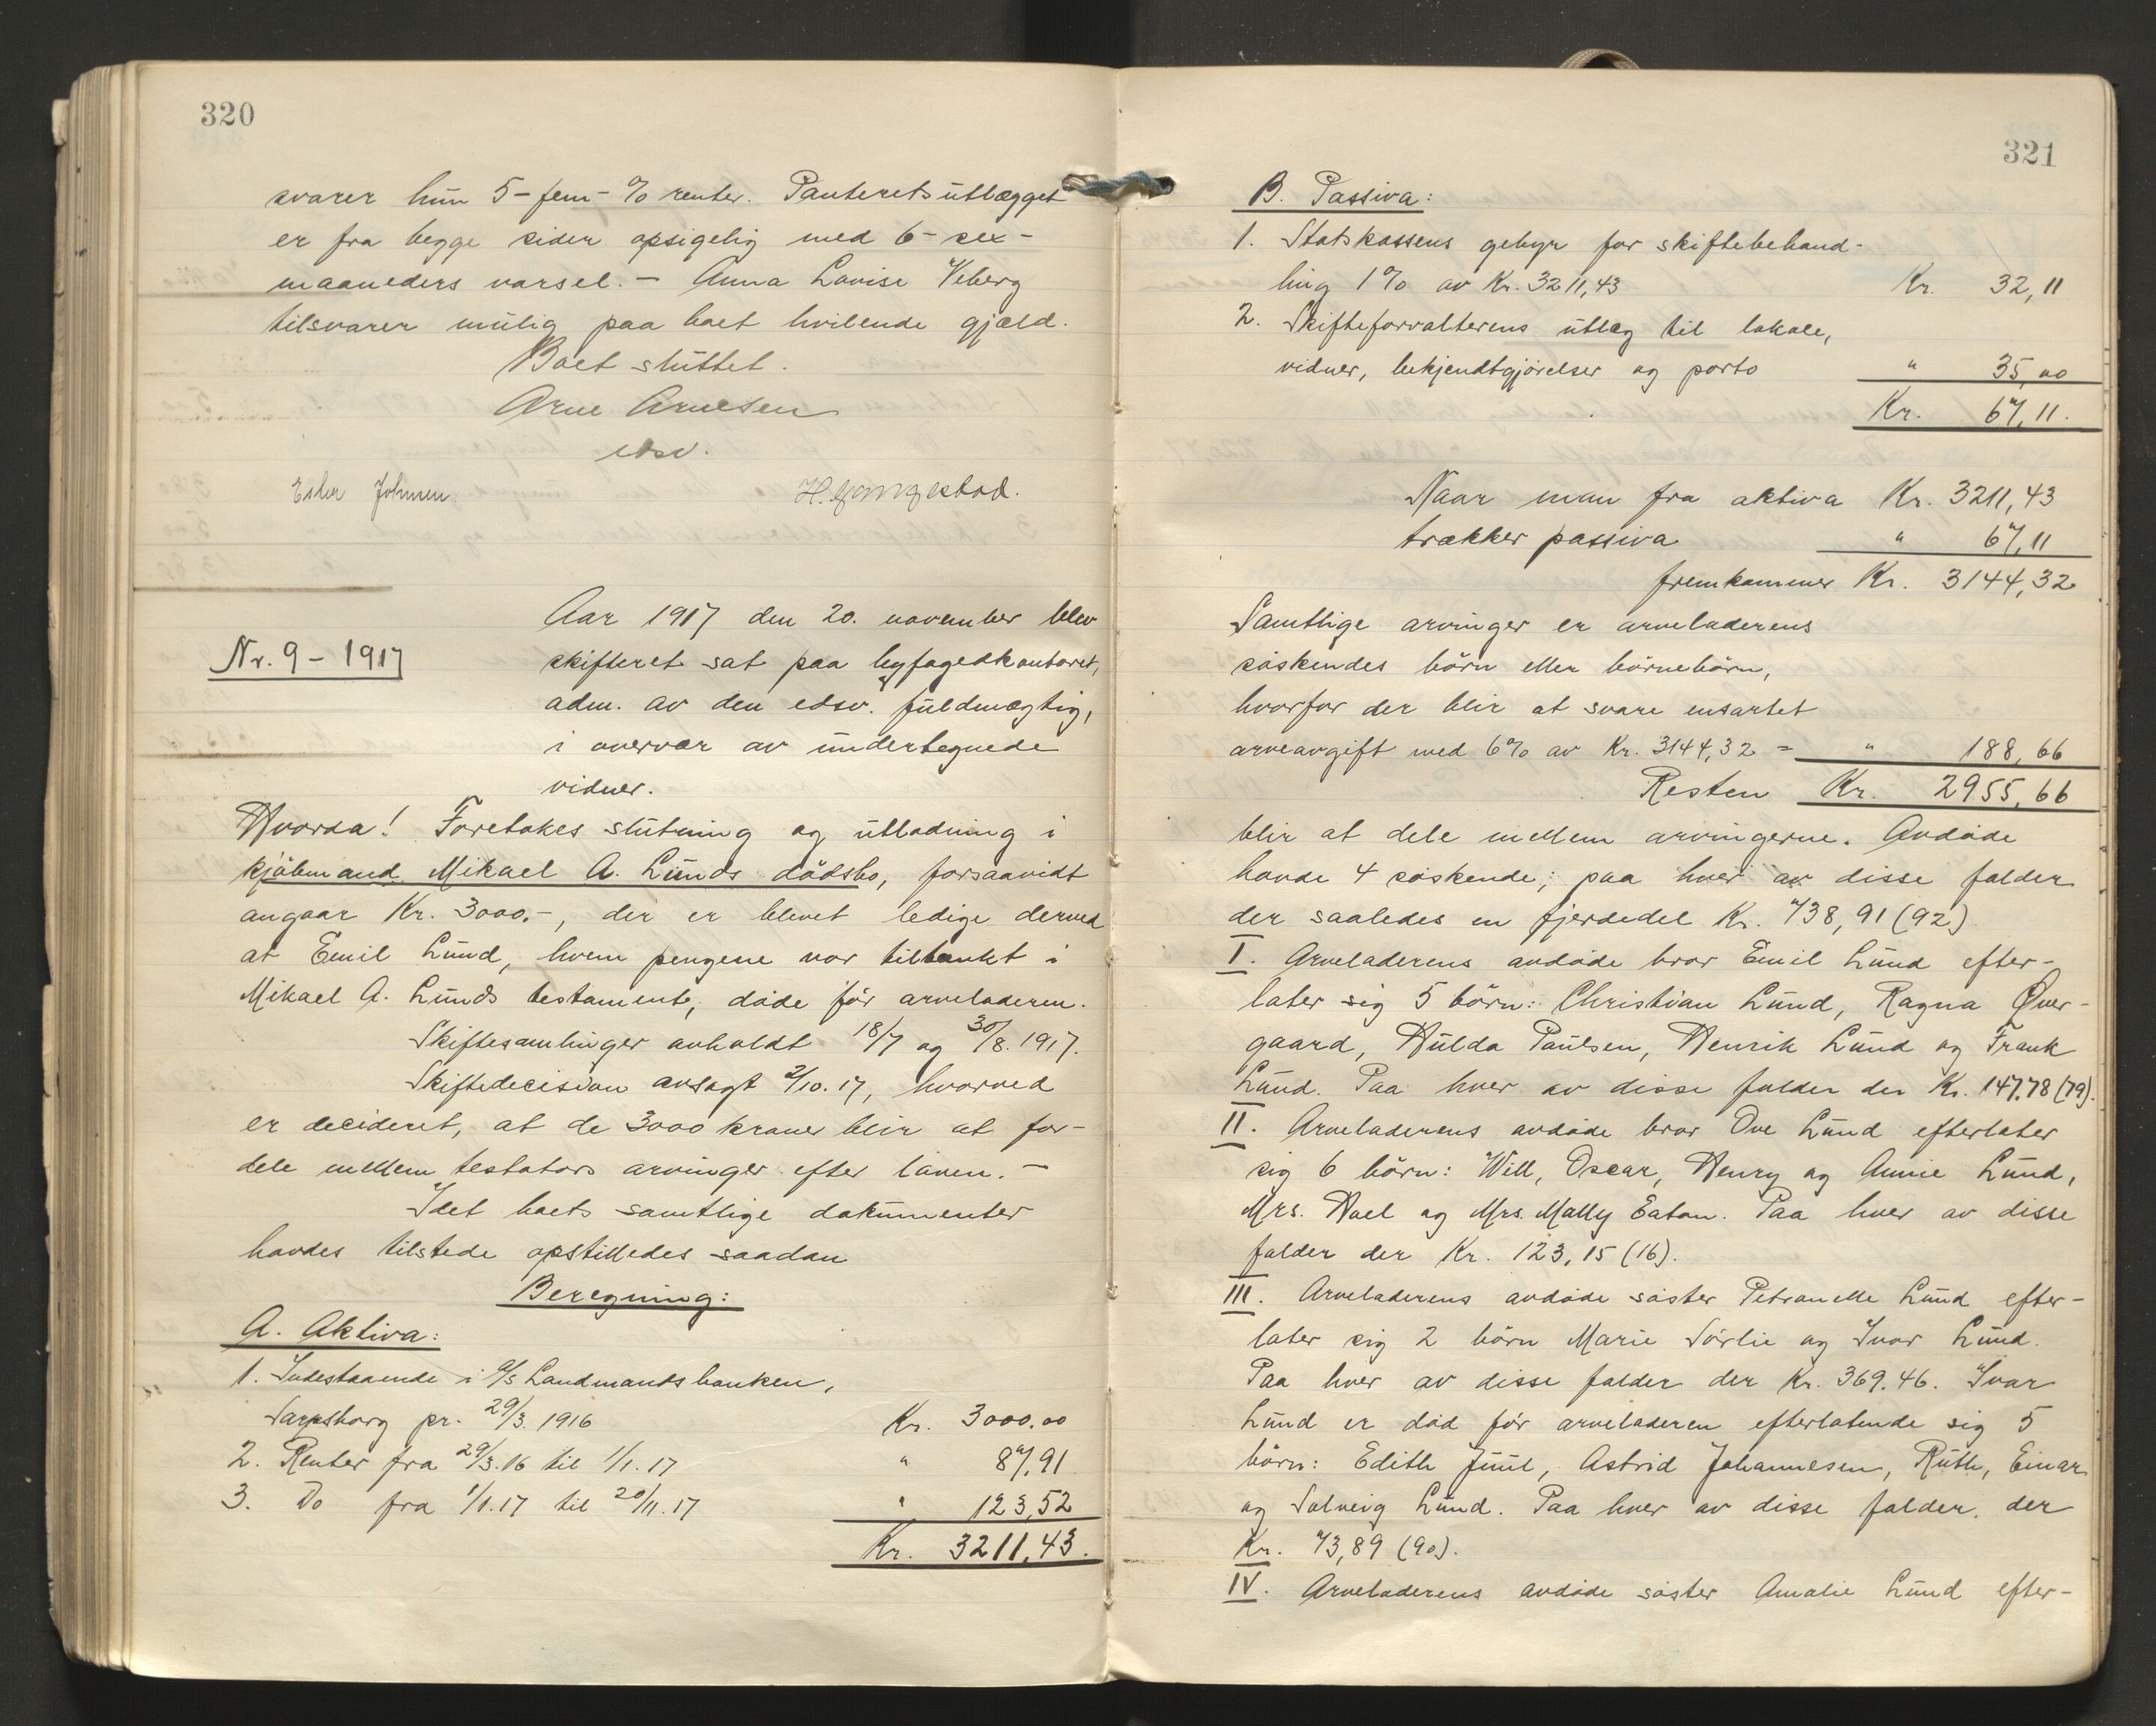 320
svarer hun 5-fem-% renter. Panteretsutlægget
er fra begge sider opsigelig med 6-sex-
maaneders varsel. - Anna Lovise Veberg
tilsvarer mulig paa boet hvilende gjæld.
Boet sluttet.
Arne Arnesen
edsv.
Ester Johnsen. H. Gangestad.
Nr. 9 - 1917
Aar 1917 den 20. november blev
skifteret sat paa byfogedkontoret,
adm. av den edsv. fuldmægtig,
i overvær av undertegnede
vidner.
Hvorda! Foretokes slutning og utlodning i
kjøbmand Mikael A. Lunds dødsbo, forsaavidt
angaar Kr. 3000.-, der er blevet ledige derved
at Emil Lund, hvem pengene var tiltænkt i
Mikael A. Lunds testament, døde før arveladeren.
Skiftesamlinger avholdt 18/7 og 30/8. 1917.
Skiftedecision avsagt 2/10. 17, hvorved
er decideret, at de 3000 kroner blir at for-
dele mellem testators arvinger efter loven. -
Idet boets samtlige dokumenter
havdes tilstede opstilledes saadan
Beregning:
A. Aktiva:
1. Indestaaende i A/S Landmandsbanken,
Sarpsborg pr. 29/3. 1916 Kr. 3000.00
2. Renter fra 29/3.16 til 1/1. 17 " 87,91
3. Do fra 1/1.17 til 20/11.17 " 123,52
Kr. 3211,43.
321
B. Passiva:
1. Statskassens gebyr for skiftebehand-
ling 1% av Kr. 3211,43 Kr. 32,11
2. Skifteforvalterens utlæg til lokale,
vidner, bekjendtgjørelser og porto " 35,00
Kr. 67,11.
Naar man fra aktiva Kr. 3211,43
trækker passiva " 67,11
fremkommer Kr. 3144,32
Samtlige arvinger er arveladerens
søskendes børn eller børnebørn,
hvorfor der blir at svare ensartet
arveavgift med 6% av Kr. 3144,32 = " 188,66
Resten Kr. 2955,66
blir at dele mellem arvingerne. Avdøde
havde 4 søskende; paa hver av disse falder
der saaledes en fjerdedel Kr. 738,91 (92)
I. Arveladerens avdøde bror Emil Lund efter-
later sig 5 børn: Christian Lund, Ragna Øver-
gaard, Hulda Paulsen, Henrik Lund og Frank
Lund. Paa hver av disse falder der Kr. 147.78 (79).
II. Arveladerens avdøde bror Ove Lund efterlater
sig 6 børn: Will, Oscar, Henry og Annie Lund,
Mrs. Hoel og Mrs. Mally Eaton. Paa hver av disse
falder der Kr. 123,15 (16).
III. Arveladerens avdøde søster Petronelle Lund efter-
later sig 2 børn Marie Sørlie og Ivar Lund.
Paa hver av disse falder der Kr. 369.46. Ivar
Lund er død før arveladeren efterlatende sig 5
børn: Edith Juul, Astrid Johannesen, Ruth, Einar
og Solveig Lund. Paa hver av disse falder der
Kr. 73,89 (90).
IV. Arveladerens avdøde søster Amalie Lund efter-